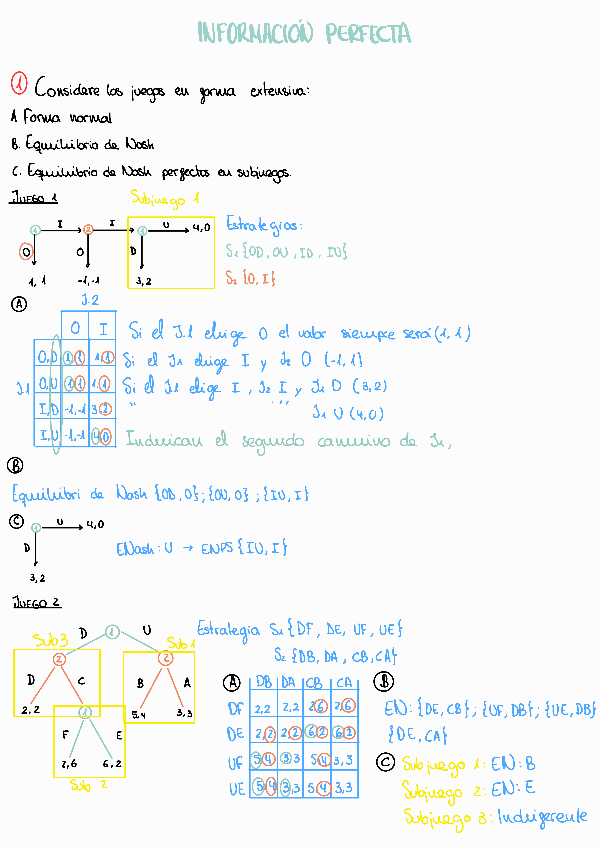 INFORMACIÓN PERFECTA
1 Considere los juegos en forma extensiva:
A Forma normal
B. Equilibrio de Nash
C. Equilibrio de Nash perfectos en subjuegos.
JUEGO 1
Subjuego 1
1 I 2 I 1 U 4,0
O O D
1, 1 -1,-1 3, 2
Estrategias:
S1 {OD, OU, ID, IU}
S2 {O, I}
A
J.2
O I
J1
O,D 1 1 1 1
O,U 1 1 1 1
I,D -1,-1 3 2
I,U -1,-1 4 0
Si el J.1 elige O el valor siempre será (1, 1)
Si el J1 elige I y J2 O (-1, 1)
Si el J1 elige I, J2 I y J1 D (3, 2)
" " " J1 U (4,0)
Indican el segundo camino de J1,
B
Equilibri de Nash {OD, O}; {OU, O}; {IU, I}
C
1 U 4,0
D
3, 2
ENash: U → ENPS {IU, I}
JUEGO 2
D 1 U
Sub 3 Sub 1
2 2
D C B A
2, 2 1 5,4 3,3
F E
2,6 6,2
Sub 2
Estrategia S1 {DF, DE, UF, UE}
S2 {DB, DA, CB, CA}
A
DB DA CB CA
DF 2,2 2,2 2 6 2 6
DE 2 2 2 2 6 2 6 2
UF 5 4 3 3 5 4 3, 3
UE 5 4 3,3 5 4 3,3
B
EN: {DE, CB}; {UF, DB}; {UE, DB}
{DE, CA}
C
Subjuego 1: EN: B
Subjuego 2: EN: E
Subjuego 3: Indiferente